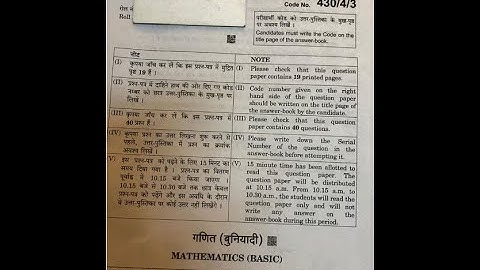 Code No. 430/4/3
रोल नं
Roll
परीक्षार्थी कोड को उत्तर-पुस्तिका के मुख-पृष्ठ
पर अवश्य लिखें ।
Candidates must write the Code on
the title page of the answer-book.
नोट
(I) कृपया जाँच कर लें कि इस प्रश्न-पत्र में मुद्रित
पृष्ठ 19 हैं ।
(II) प्रश्न-पत्र में दाहिने हाथ की ओर दिए गए कोड
नम्बर को छात्र उत्तर-पुस्तिका के मुख-पृष्ठ पर
लिखें ।
(III) कृपया जाँच कर लें कि इस प्रश्न-पत्र में
40 प्रश्न हैं ।
(IV) कृपया प्रश्न का उत्तर लिखना शुरू करने से
पहले, उत्तर-पुस्तिका में प्रश्न का क्रमांक
अवश्य लिखें ।
(V) इस प्रश्न-पत्र को पढ़ने के लिए 15 मिनट का
समय दिया गया है । प्रश्न-पत्र का वितरण
पूर्वाह्न में 10.15 बजे किया जाएगा ।
10.15 बजे से 10.30 बजे तक छात्र केवल
प्रश्न-पत्र को पढ़ेंगे और इस अवधि के दौरान
वे उत्तर-पुस्तिका पर कोई उत्तर नहीं लिखेंगे ।
NOTE
(I) Please check that this question
paper contains 19 printed pages.
(II) Code number given on the right
hand side of the question paper
should be written on the title page of
the answer-book by the candidate.
(III) Please check that this question
paper contains 40 questions.
(IV) Please write down the Serial
Number of the question in the
answer-book before attempting it.
(V) 15 minute time has been allotted to
read this question paper. The
question paper will be distributed
at 10.15 a.m. From 10.15 a.m. to
10.30 a.m., the students will read the
question paper only and will not
write any answer on the
answer-book during this period.
गणित (बुनियादी)
MATHEMATICS (BASIC)